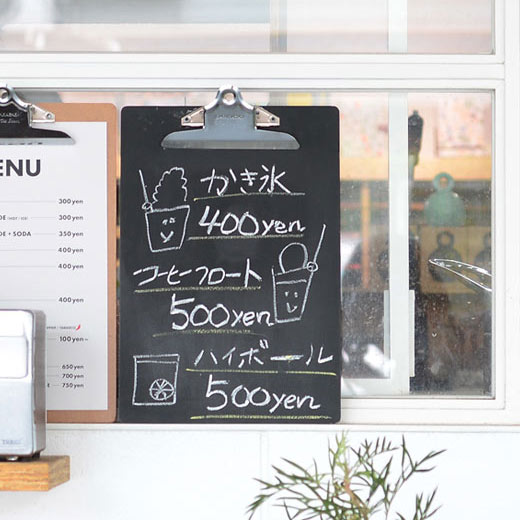 ENU
300 yen
300 yen
DE + SODA 350 yen
400 yen
400 yen
400 yen
100 yen~
650 yen
700 yen
750 yen
かき氷
400yen
コーヒーフロート
500yen
ハイボール
500yen